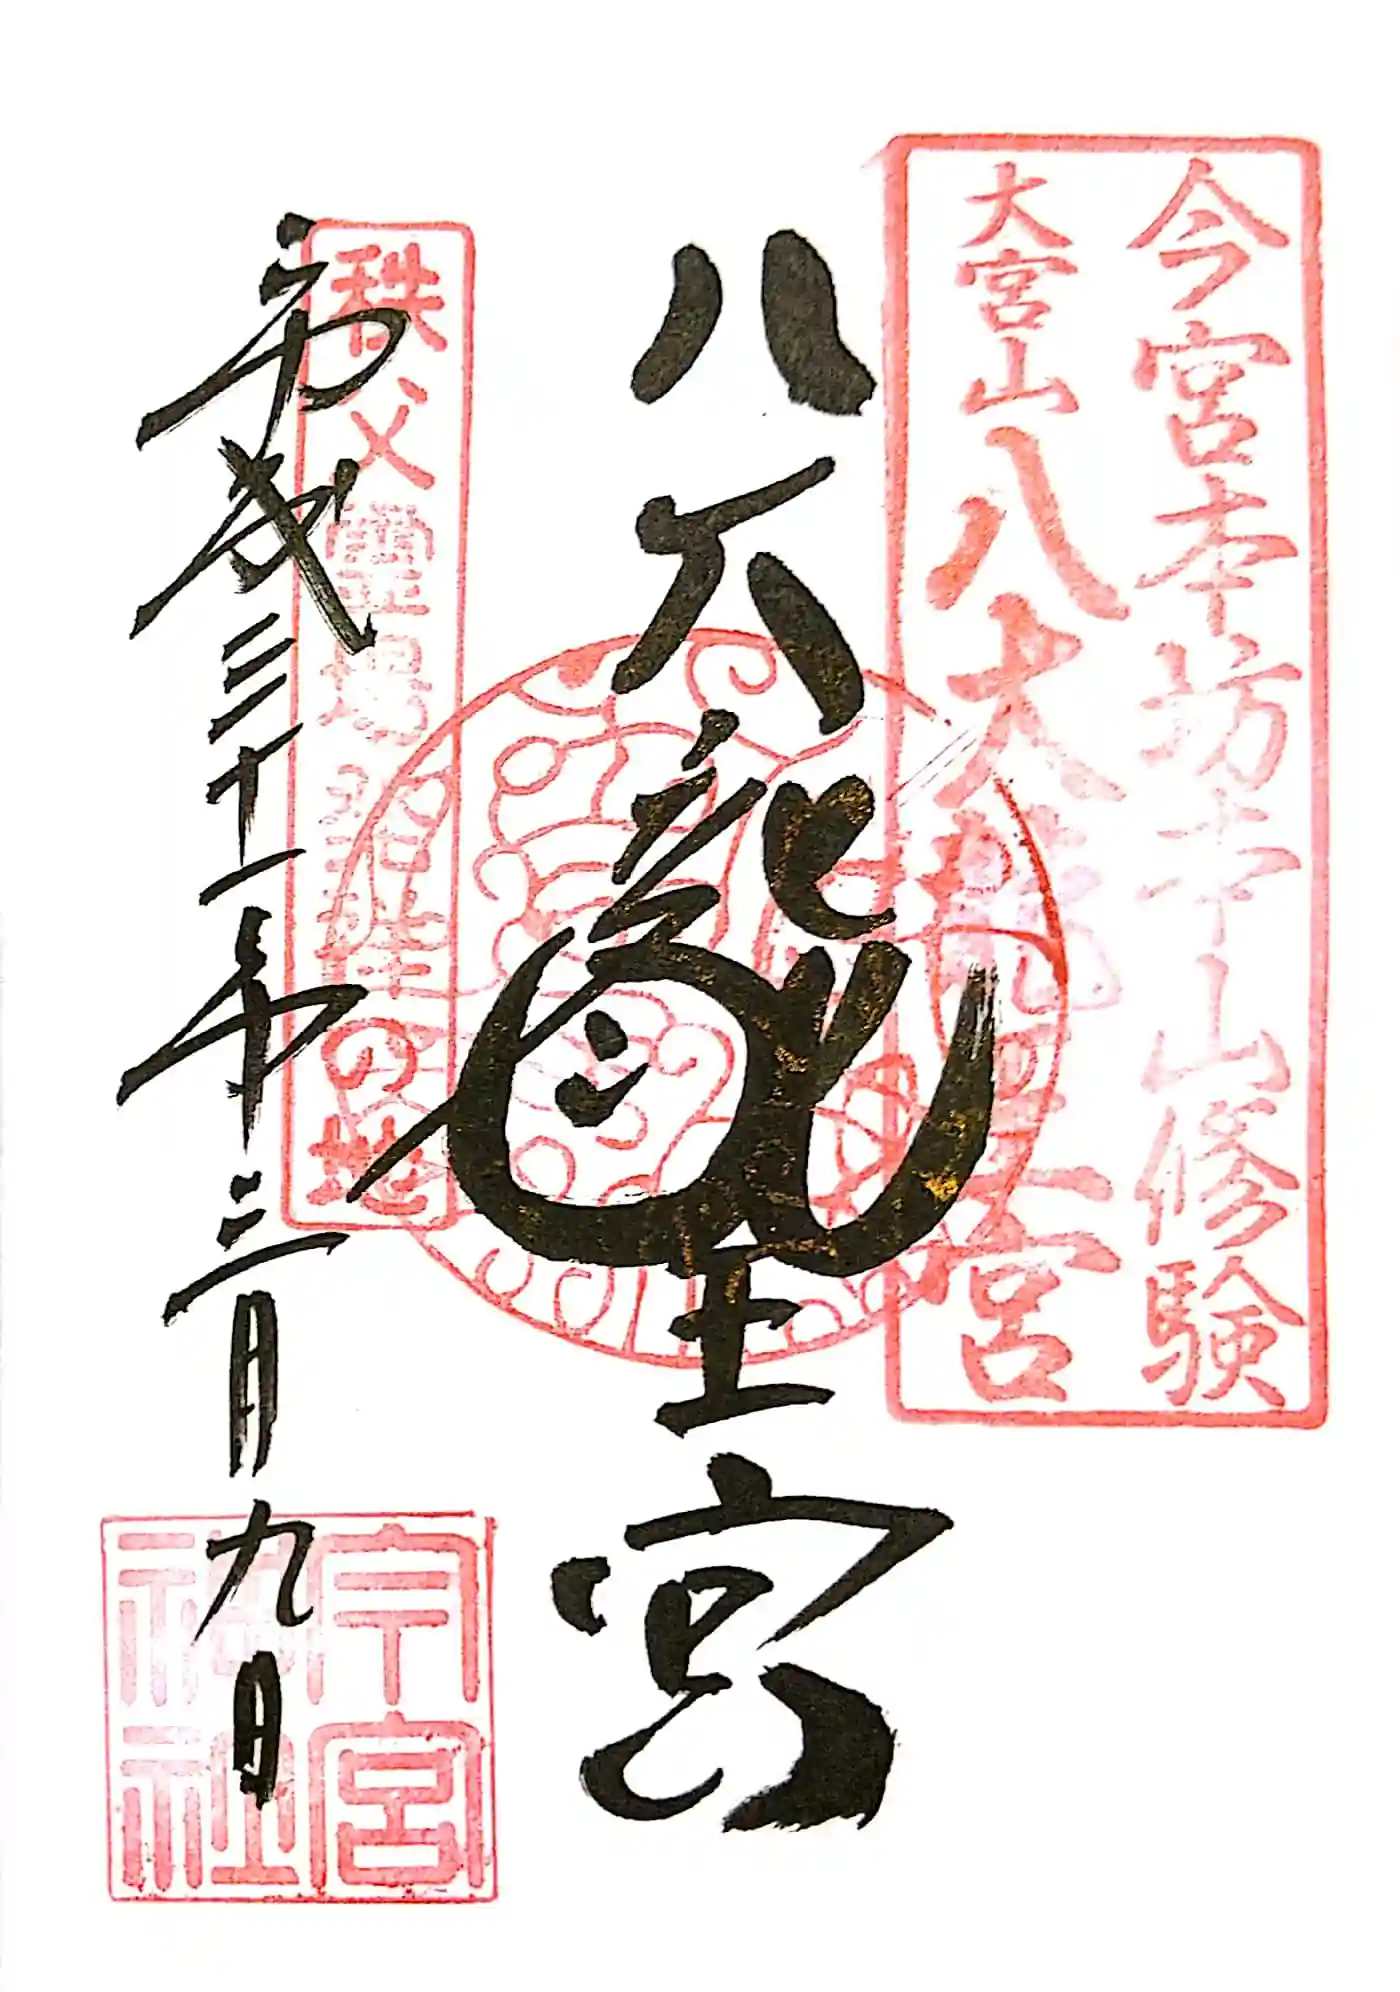 今宮本坊本山修験
大宮山八大龍王宮
八大龍王宮
秩父霊場発祥の地
平成三十一年三月九日
今宮
神社